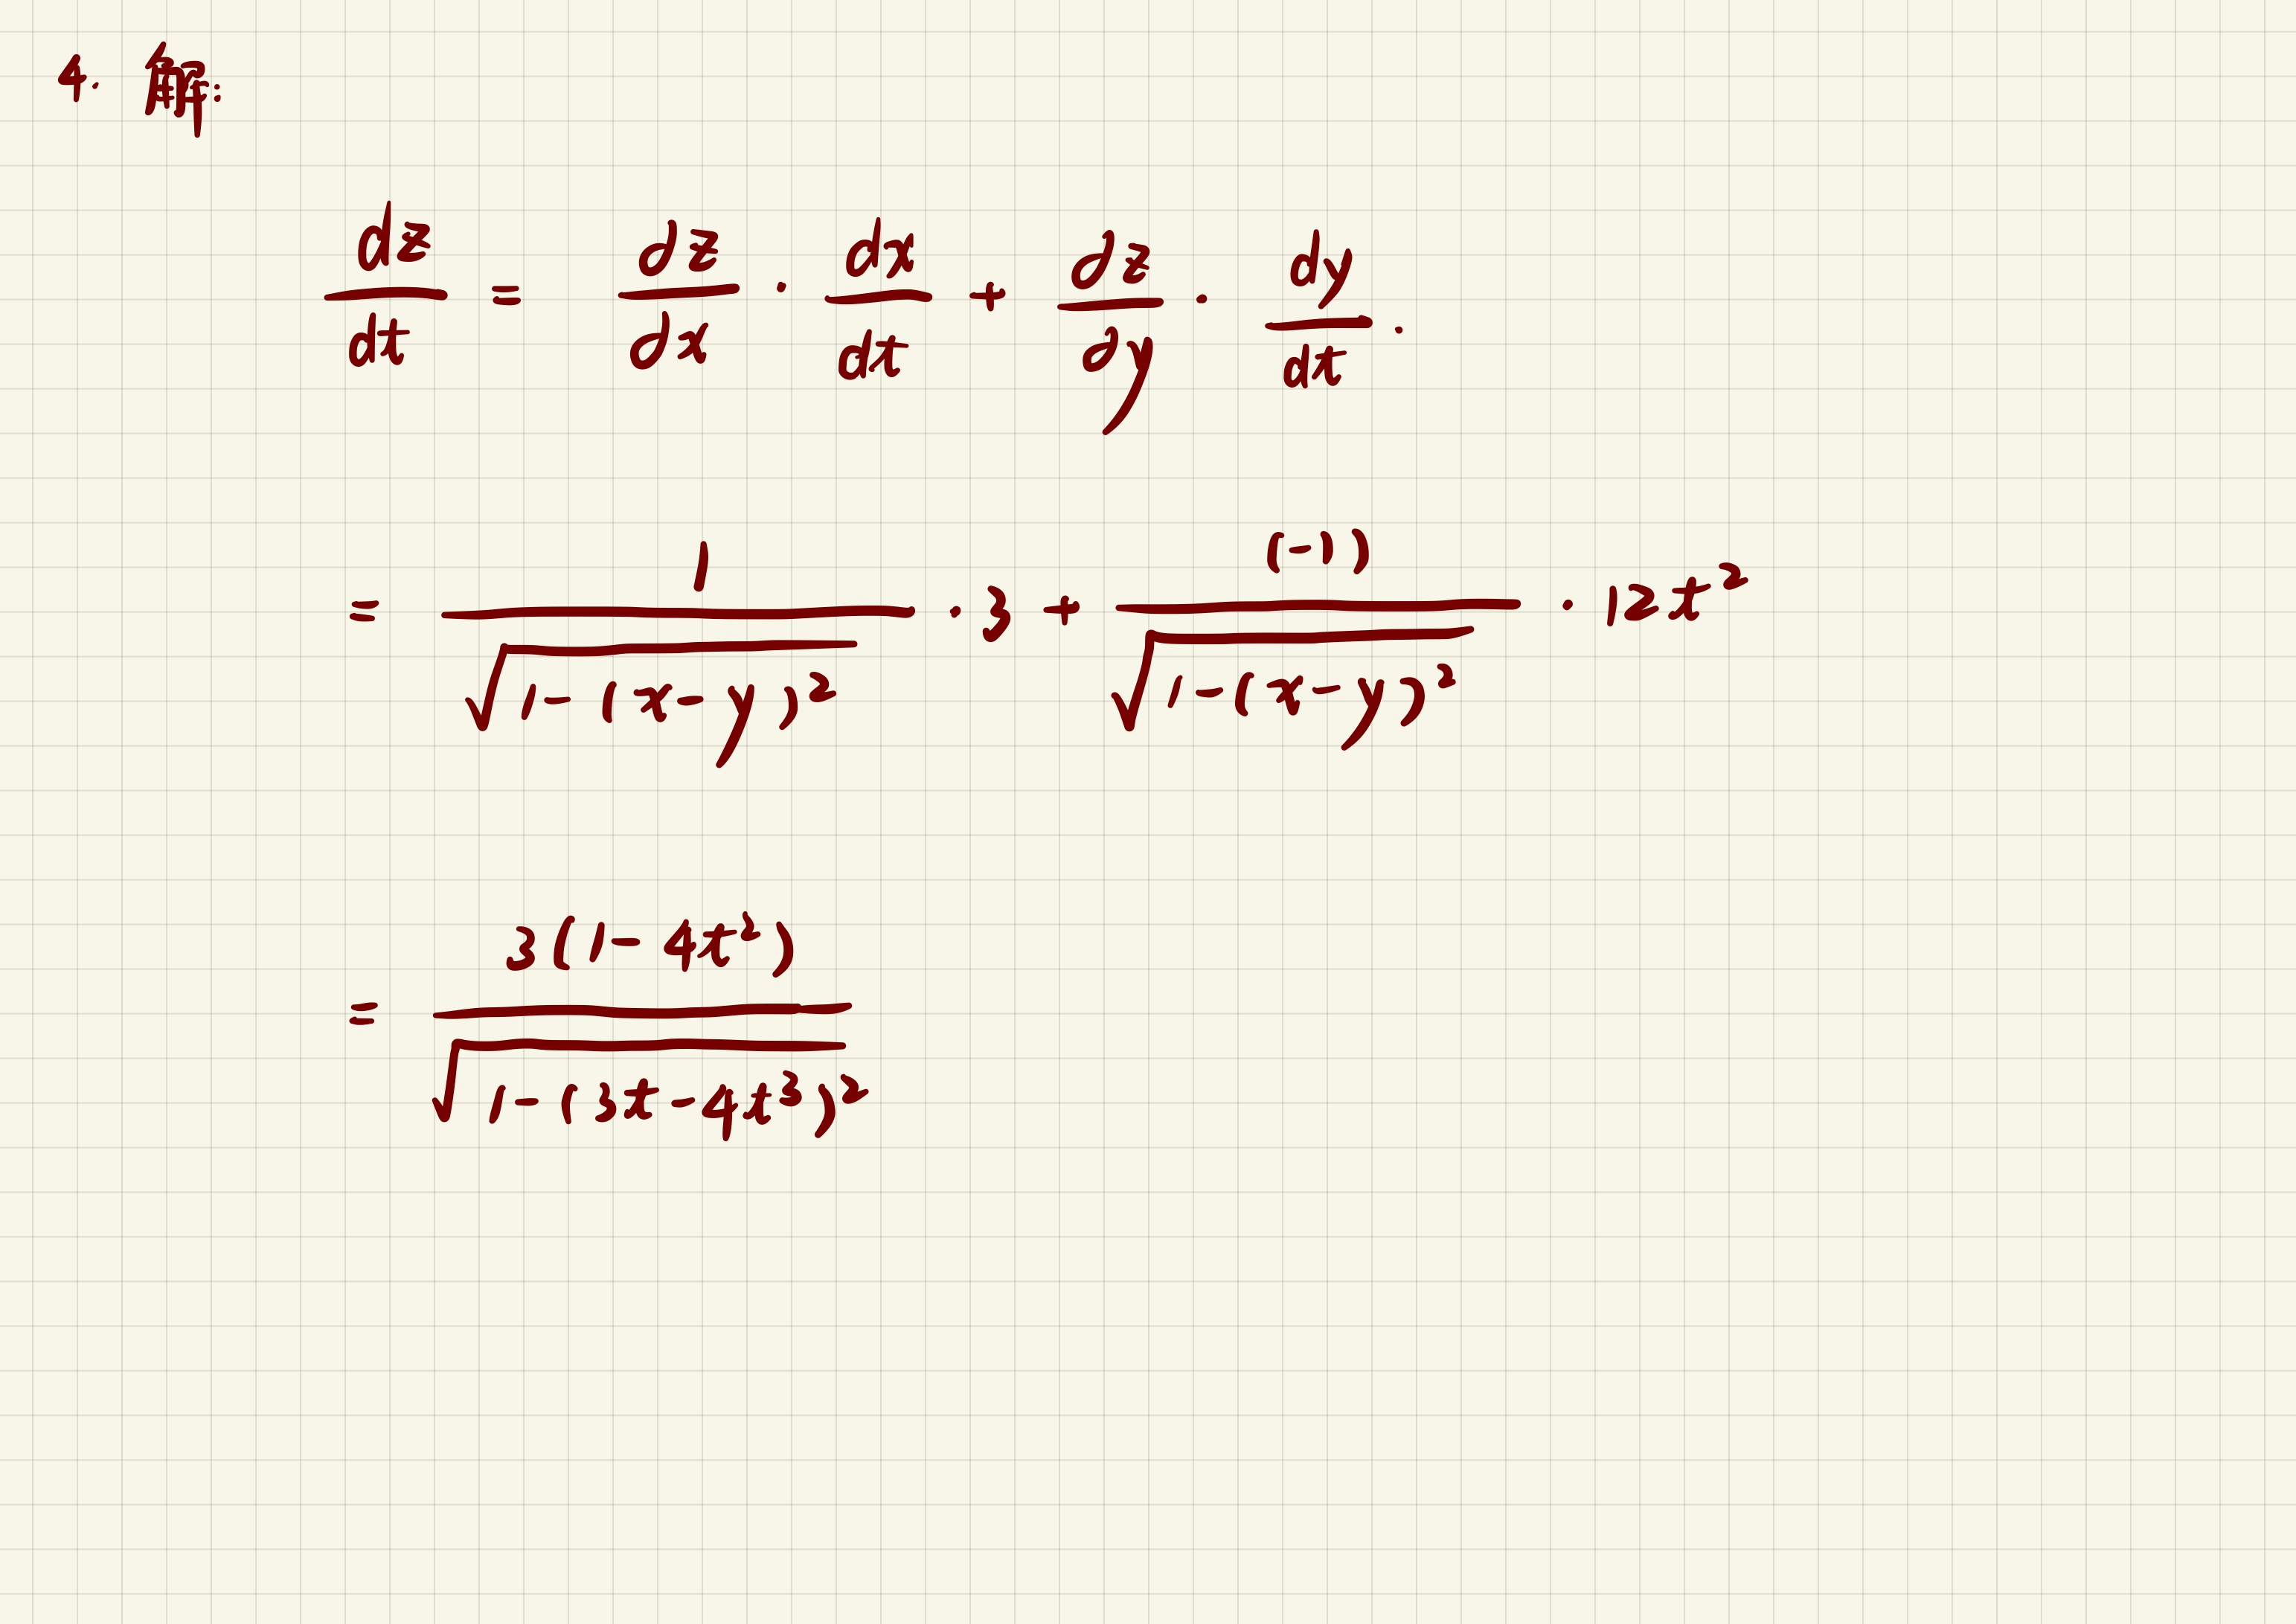 4. 解:
dz/dt = ∂z/∂x · dx/dt + ∂z/∂y · dy/dt .
= 1/√(1-(x-y)²) · 3 + (-1)/√(1-(x-y)²) · 12t²
= 3(1-4t²)/√(1-(3t-4t³)²)